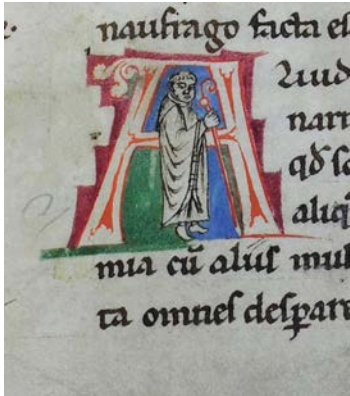 naufrago facta es
A
Quid
narr
qđ sc
aliq
mia cū aliis mul
ta omnes desꝑare